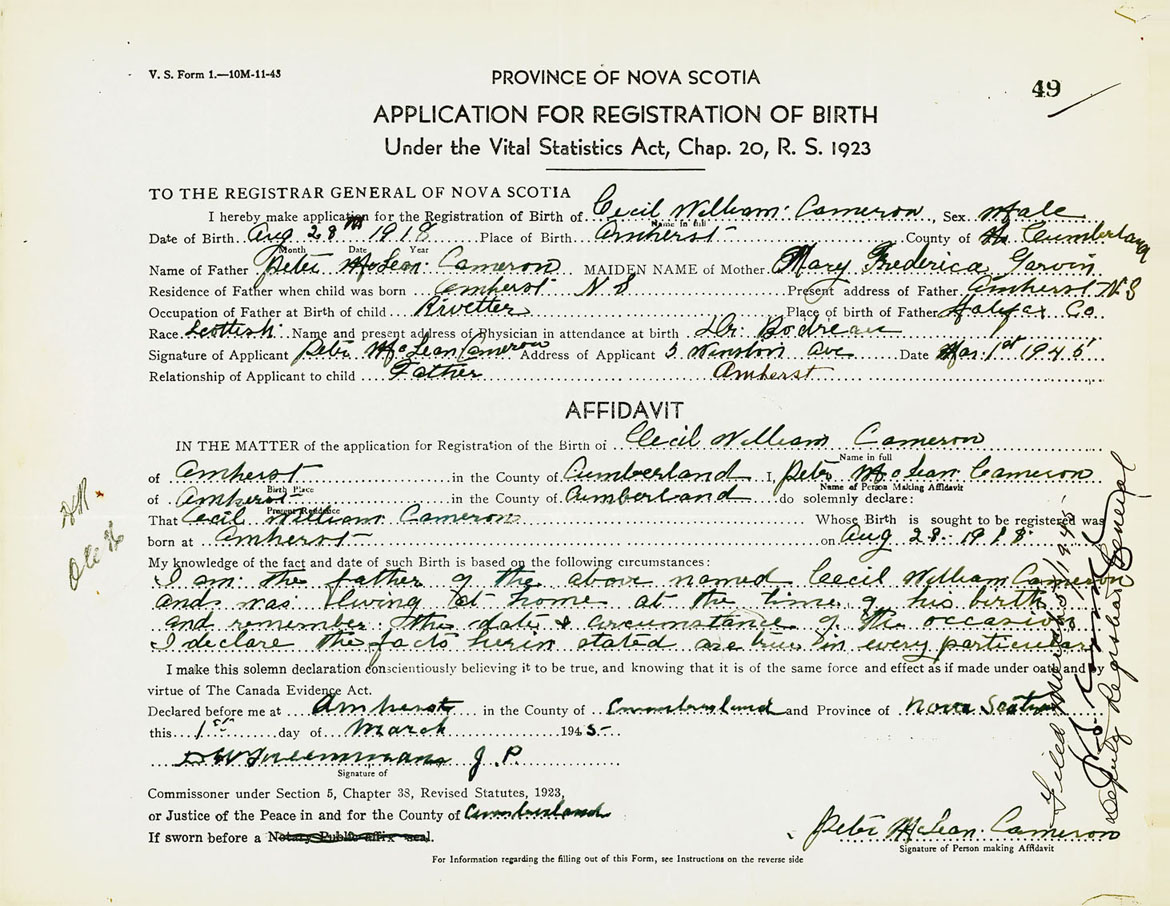 V. S. Form 1.—10M-11-43
PROVINCE OF NOVA SCOTIA
49
APPLICATION FOR REGISTRATION OF BIRTH
Under the Vital Statistics Act, Chap. 20, R. S. 1923
TO THE REGISTRAR GENERAL OF NOVA SCOTIA
I hereby make application for the Registration of Birth of Cecil William Cameron, Sex Male
Name in full
Date of Birth Aug 28th 1918 Place of Birth Amherst County of Cumberland
Month Date Year
Name of Father Peter McLean Cameron MAIDEN NAME of Mother Mary Frederica Garvin
Residence of Father when child was born Amherst N S Present address of Father Amherst N S
Occupation of Father at Birth of child Rivetter Place of birth of Father Halifax Co.
Race Scottish Name and present address of Physician in attendance at birth Dr. Bodreau
Signature of Applicant Peter McLean Cameron Address of Applicant 5 Winston Ave Date Mar. 1st 1945
Relationship of Applicant to child Father Amherst
AFFIDAVIT
IN THE MATTER of the application for Registration of the Birth of Cecil William Cameron
Name in full
of Amherst in the County of Cumberland I, Peter McLean Cameron
Birth Place Name of Person Making Affidavit
of Amherst in the County of Cumberland do solemnly declare:
Present Residence
That Cecil William Cameron Whose Birth is sought to be registered was
born at Amherst on Aug 28 1918
My knowledge of the fact and date of such Birth is based on the following circumstances:
I am the father of the above named Cecil William Cameron
and was living at home at the time of his birth
and remember the date & circumstance of the occasion
I declare the facts herin stated are true in every particular
I make this solemn declaration conscientiously believing it to be true, and knowing that it is of the same force and effect as if made under oath and by
virtue of The Canada Evidence Act.
Declared before me at Amherst in the County of Cumberland and Province of Nova Scotia
this 1st day of March 1945
J. P.
Signature of
Commissioner under Section 5, Chapter 38, Revised Statutes, 1923,
or Justice of the Peace in and for the County of Cumberland
If sworn before a Notary Public affix seal.
Peter McLean Cameron
Signature of Person making Affidavit
For Information regarding the filling out of this Form, see Instructions on the reverse side
Filed March 1945
Deputy Registrar General